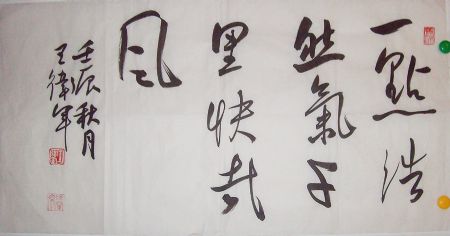 一點浩
然氣千
里快哉
风
壬辰秋月
王緯年